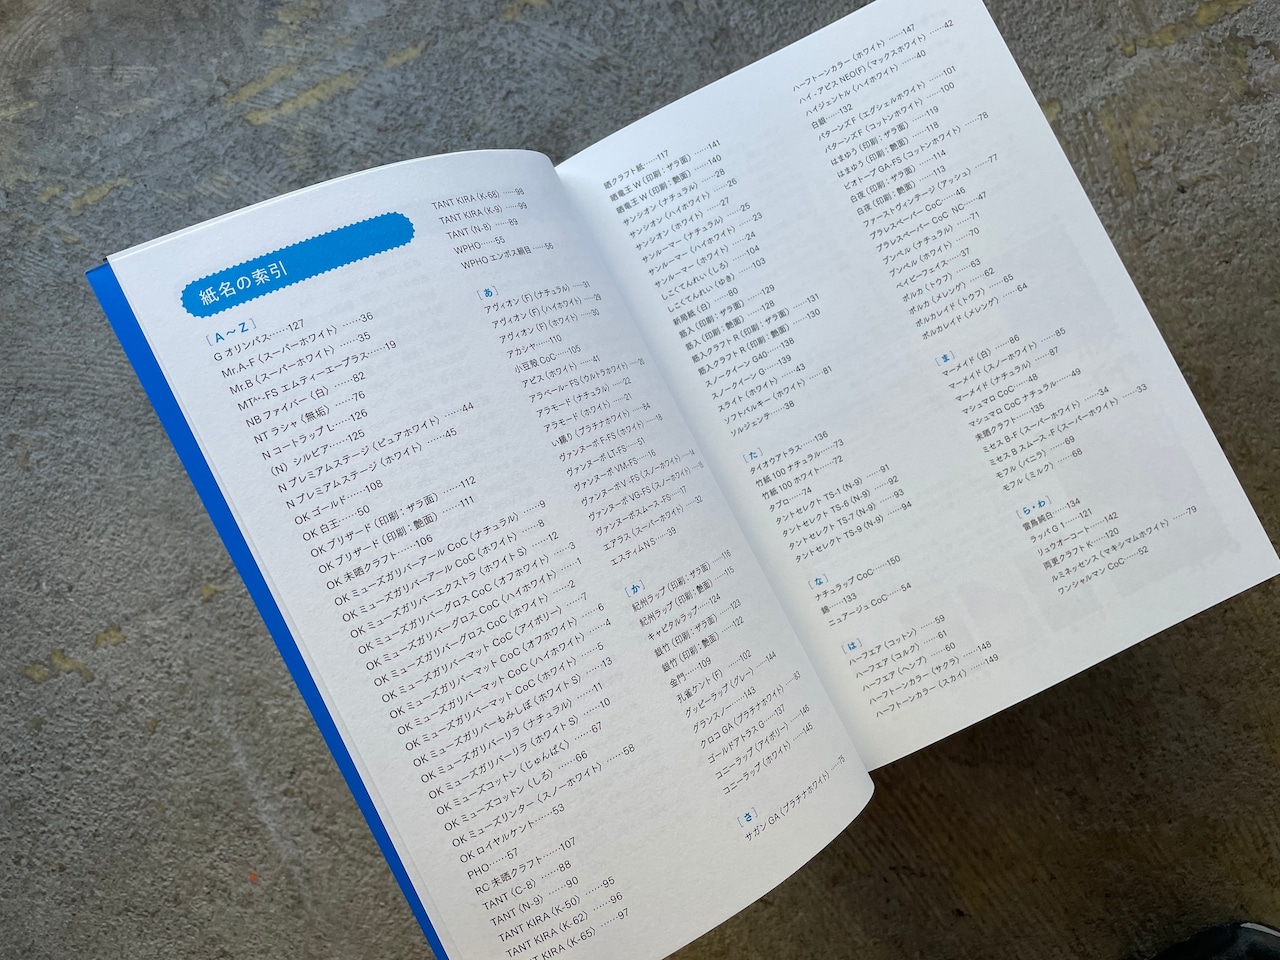 紙名の索引
[A〜Z]
G オリンパス……127
Mr.A-F〈スーパーホワイト〉……36
Mr.B〈スーパーホワイト〉……35
MTA+-FS エムティーエープラス……19
NB ファイバー〈白〉……82
NT ラシャ〈無垢〉……76
N コートラップ L……126
(N) シルビア……125
N プレミアムステージ〈ピュアホワイト〉……44
N プレミアムステージ〈ホワイト〉……45
OK ゴールド……108
OK 白王……50
OK ブリザード（印刷：ザラ面）……112
OK ブリザード（印刷：艶面）……111
OK 未晒クラフト……106
OK ミューズガリバーアール CoC〈ナチュラル〉……9
OK ミューズガリバーアール CoC〈ホワイト〉……8
OK ミューズガリバーエクストラ〈ホワイト S〉……12
OK ミューズガリバーグロス CoC〈オフホワイト〉……3
OK ミューズガリバーグロス CoC〈ハイホワイト〉……1
OK ミューズガリバーグロス CoC〈ホワイト〉……2
OK ミューズガリバーマット CoC〈アイボリー〉……7
OK ミューズガリバーマット CoC〈オフホワイト〉……6
OK ミューズガリバーマット CoC〈ハイホワイト〉……4
OK ミューズガリバーマット CoC〈ホワイト〉……5
OK ミューズガリバーもみしぼ〈ホワイト S〉……13
OK ミューズガリバーリラ〈ナチュラル〉……11
OK ミューズガリバーリラ〈ホワイト S〉……10
OK ミューズコットン〈じゅんぱく〉……67
OK ミューズコットン〈しろ〉……66
OK ミューズリンター〈スノーホワイト〉……58
OK ロイヤルケント……53
PHO……57
RC 未晒クラフト……107
TANT〈C-8〉……88
TANT〈N-9〉……90
TANT KIRA〈K-50〉……95
TANT KIRA〈K-62〉……96
TANT KIRA〈K-65〉……97
TANT KIRA〈K-68〉……98
TANT KIRA〈K-9〉……99
TANT〈N-8〉……89
WPHO……55
WPHO エンボス絹目……56
[あ]
アヴィオン (F)〈ナチュラル〉……31
アヴィオン (F)〈ハイホワイト〉……29
アヴィオン (F)〈ホワイト〉……30
アカシヤ……110
小豆殻 CoC……105
アビス〈ホワイト〉……41
アラベール-FS〈ウルトラホワイト〉……20
アラモード〈ナチュラル〉……22
アラモード〈ホワイト〉……21
い織り〈プラチナホワイト〉……84
ヴァンヌーボ F-FS〈ホワイト〉……18
ヴァンヌーボ LT-FS……51
ヴァンヌーボ VM-FS……16
ヴァンヌーボ V-FS〈スノーホワイト〉……14
ヴァンヌーボ VG-FS〈スノーホワイト〉……15
ヴァンヌーボスムース-FS……17
エアラス〈スーパーホワイト〉……32
エスティム N S……39
[か]
紀州ラップ（印刷：ザラ面）……116
紀州ラップ（印刷：艶面）……115
キャピタルラップ……124
銀竹（印刷：ザラ面）……123
銀竹（印刷：艶面）……122
金門……109
孔雀ケント (F)……102
グッピーラップ〈グレー〉……144
グランスノー……143
クロコ GA〈プラチナホワイト〉……83
ゴールドアトラス G……137
コニーラップ〈アイボリー〉……146
コニーラップ〈ホワイト〉……145
[さ]
サガン GA〈プラチナホワイト〉……75
晒クラフト紙……117
晒竜王 W（印刷：ザラ面）……141
晒竜王 W（印刷：艶面）……140
サンシオン〈ナチュラル〉……28
サンシオン〈ハイホワイト〉……26
サンシオン〈ホワイト〉……27
サンルーマー〈ナチュラル〉……25
サンルーマー〈ハイホワイト〉……23
サンルーマー〈ホワイト〉……24
しこくてんれい〈しろ〉……104
しこくてんれい〈ゆき〉……103
新局紙〈白〉……80
筋入（印刷：ザラ面）……129
筋入（印刷：艶面）……128
筋入クラフト R（印刷：ザラ面）……131
筋入クラフト R（印刷：艶面）……130
スノークイーン G40……138
スノークイーン G……139
スライト〈ホワイト〉……43
ソフトバルキー〈ホワイト〉……81
ソルジェンテ……38
[た]
タイオウアトラス……136
竹紙 100 ナチュラル……73
竹紙 100 ホワイト……72
タブロ……74
タントセレクト TS-1〈N-9〉……91
タントセレクト TS-6〈N-9〉……92
タントセレクト TS-7〈N-9〉……93
タントセレクト TS-9〈N-9〉……94
[な]
ナチュラップ CoC……150
錦……133
ニュアージュ CoC……54
[は]
ハーフエア〈コットン〉……59
ハーフエア〈コルク〉……61
ハーフエア〈ヘンプ〉……60
ハーフトーンカラー〈サクラ〉……148
ハーフトーンカラー〈スカイ〉……149
ハーフトーンカラー〈ホワイト〉……147
ハイ-アピス NEO(F)〈マックスホワイト〉……42
ハイジェントル〈ハイホワイト〉……40
白銀……132
パターンズ F〈エグシェルホワイト〉……101
パターンズ F〈コットンホワイト〉……100
はまゆう（印刷：ザラ面）……119
はまゆう（印刷：艶面）……118
ビオトープ GA-FS〈コットンホワイト〉……78
白夜（印刷：ザラ面）……114
白夜（印刷：艶面）……113
ファーストヴィンテージ〈アッシュ〉……77
ブラレスペーパー CoC……46
ブラレスペーパー CoC NC……47
ブンペル〈ナチュラル〉……71
ブンペル〈ホワイト〉……70
ベイビーフェイス……37
ポルカ〈トウフ〉……63
ポルカ〈メレンゲ〉……62
ポルカレイド〈トウフ〉……65
ポルカレイド〈メレンゲ〉……64
[ま]
マーメイド〈白〉……86
マーメイド〈スノーホワイト〉……85
マーメイド〈ナチュラル〉……87
マシュマロ CoC……48
マシュマロ CoC ナチュラル……49
未晒クラフト……135
ミセス B-F〈スーパーホワイト〉……34
ミセス B スムース-F〈スーパーホワイト〉……33
モフル〈バニラ〉……69
モフル〈ミルク〉……68
[ら・わ]
雷鳥純白……134
ラッパ G 1……121
リュウオーコート……142
両更クラフト K……120
ルミネッセンス〈マキシマムホワイト〉……79
ワンシャルマン CoC……52